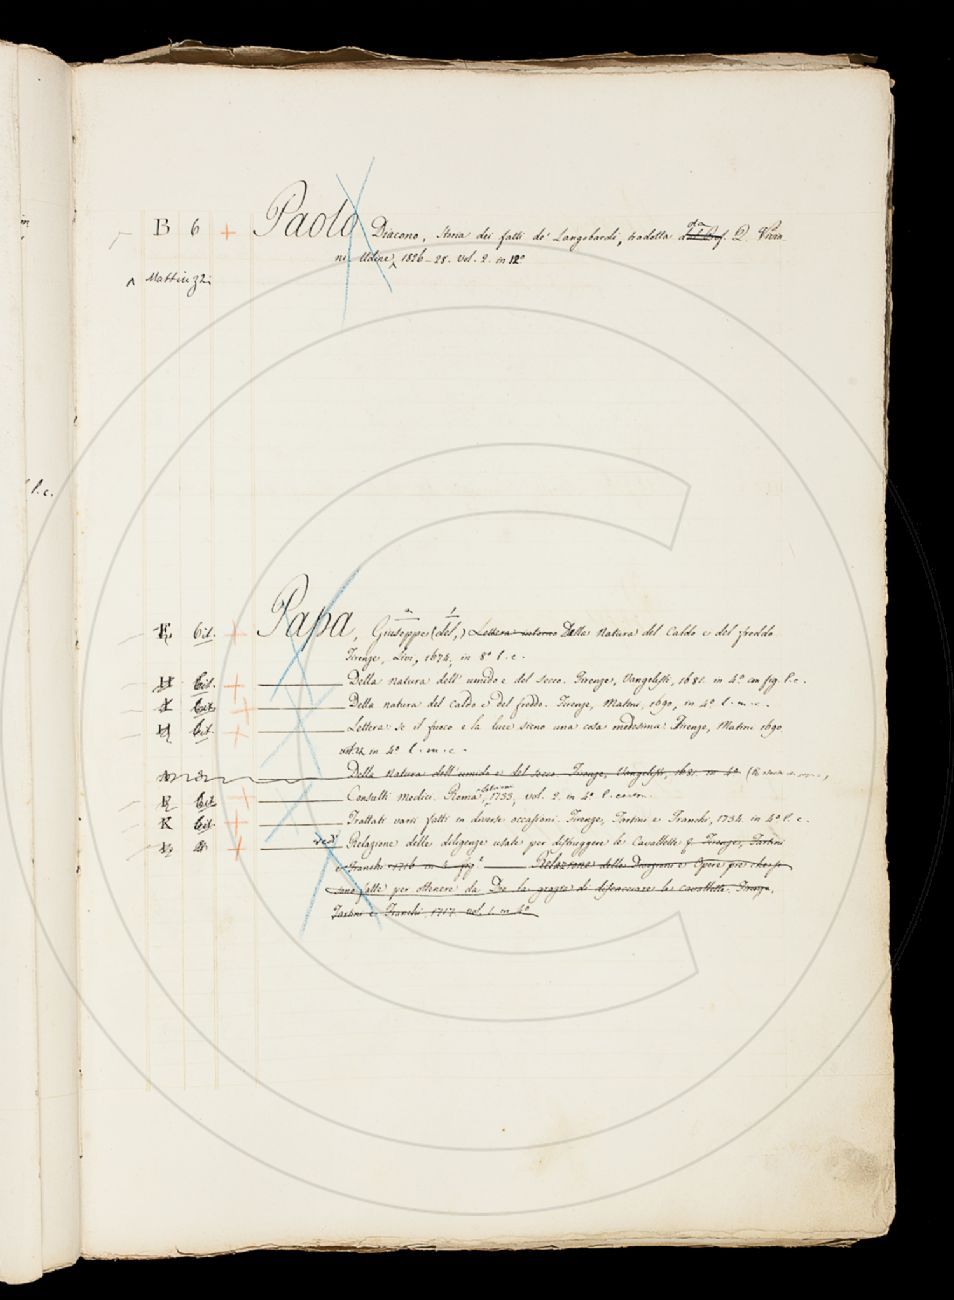 B 6 + Paolo Diacono, Storia dei fatti de' Langobardi, tradotta da Q. Vivia-
ni. Udine, 1826-28. vol. 2. in 12º
^ Mattiuzzi
l. c.
Papa, Giuseppe (del,) Lettera intorno Della Natura del Caldo e del freddo
Firenze, Livi, 1674, in 8º l. c.
Della natura dell'umido e del secco. Firenze, Vangelisti, 1681. in 4º con fig. l. c.
Della natura del caldo e del freddo. Firenze, Matini, 1690, in 4º l. m. c.
Lettera se il fuoco e la luce sieno una cosa medesima. Firenze, Matini 1690
in 4º l. m. c.
Della natura dell'umido e del secco Firenze, Vangelisti, 1681. in 4º
Consulti Medici. Roma 1733, vol. 2. in 4º l.
K Trattati varii fatti in diverse occasioni. Firenze, Tartini e Franchi, 1734. in 4º l. c.
Relazione delle diligenze usate per distruggere le Cavallette Firenze, Tartini
e Franchi 1716 in 4 Relazione delle Diligenze e Opere pie che si
sono fatte per ottenere da Dio la grazia di discacciare le cavallette. Firenze,
Tartini e Franchi. 1717. vol. 1. in 4º